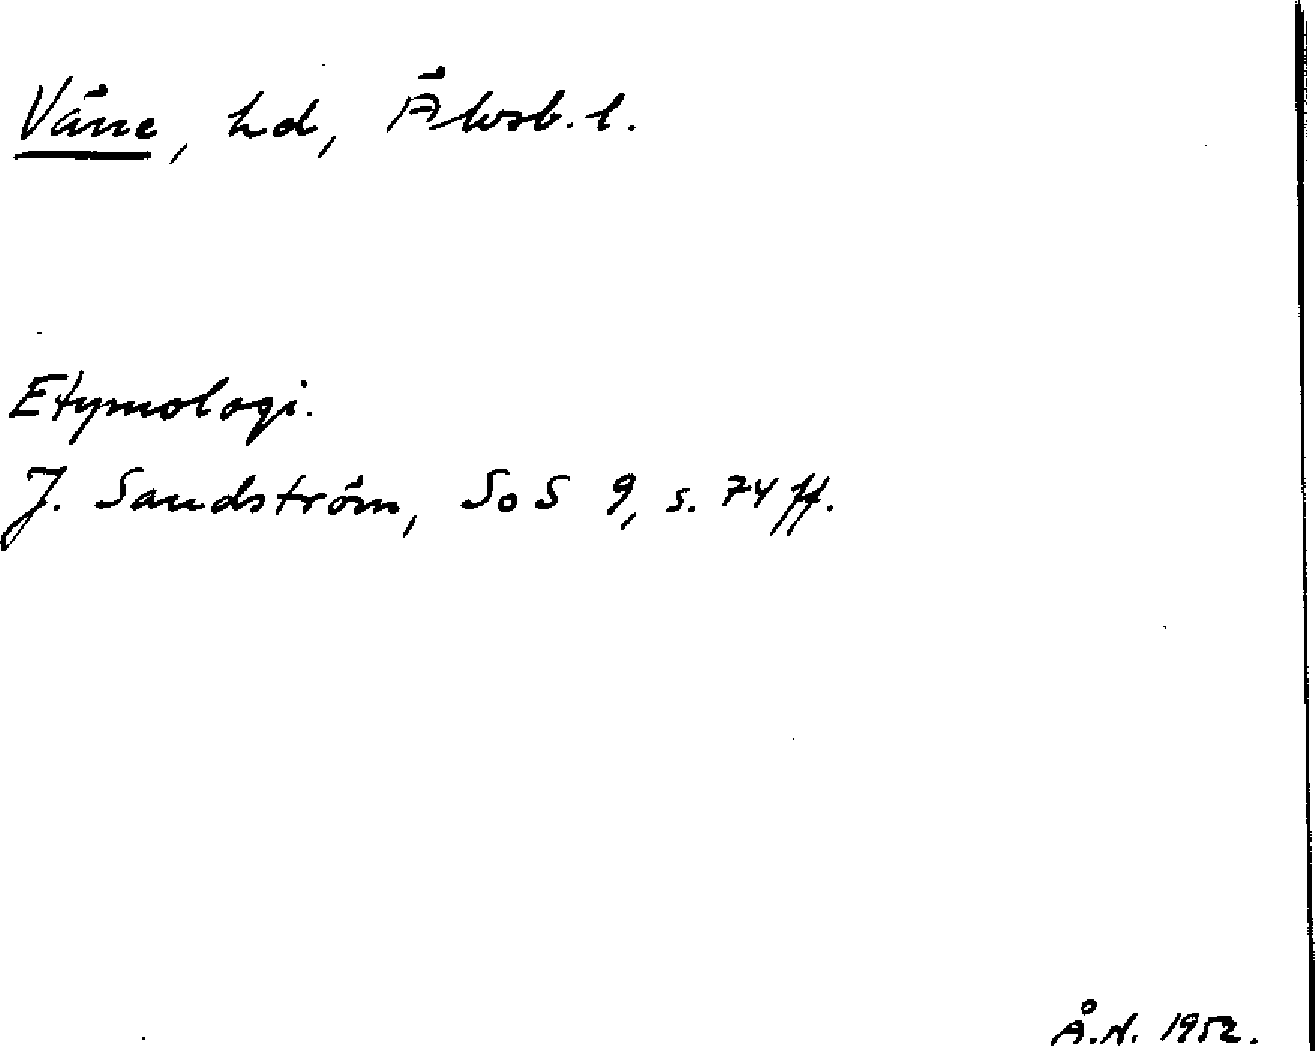 Väne, hd, Älvsb. l.
Etymologi.
J. Sandström, SoS 9, s. 74 ff.
Å.N. 1952.